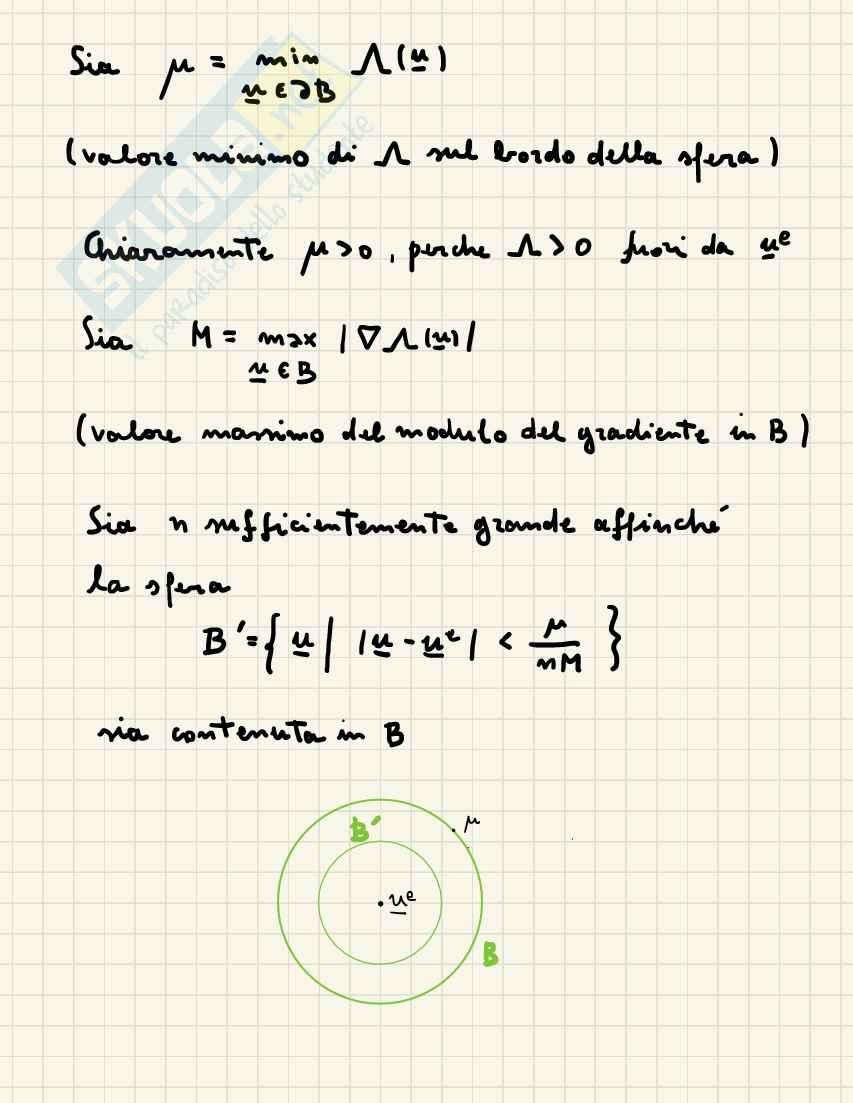 Sia μ = min Λ(u)
u ∈ ∂B
(valore minimo di Λ sul bordo della sfera)
Chiaramente μ>0, perche Λ>0 fuori da uᵉ
Sia M = max |∇Λ(u)|
u ∈ B
(valore massimo del modulo del gradiente in B)
Sia n sufficientemente grande affinché
la sfera
B' = { u | |u - uᵉ| < μ/nM }
sia contenuta in B
B'
μ
uᵉ
B
SKUOLA.net
il paradiso dello studente